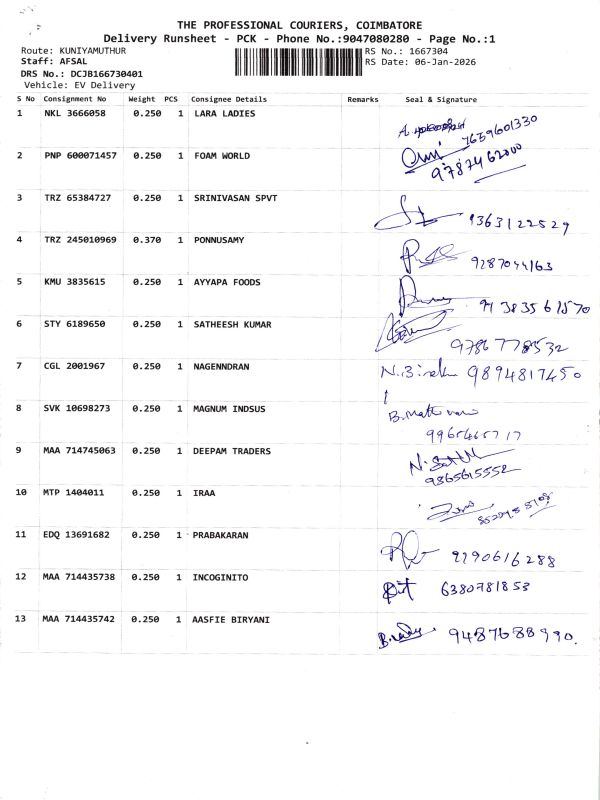 THE PROFESSIONAL COURIERS, COIMBATORE
Delivery Runsheet - PCK - Phone No.:9047080280 - Page No.:1
Route: KUNIYAMUTHUR RS No.: 1667304
Staff: AFSAL RS Date: 06-Jan-2026
DRS No.: DCJB166730401
Vehicle: EV Delivery
S No Consignment No Weight PCS Consignee Details Remarks Seal & Signature
1 NKL 3666058 0.250 1 LARA LADIES 7639601330
2 PNP 600071457 0.250 1 FOAM WORLD 9787462000
3 TRZ 65384727 0.250 1 SRINIVASAN SPVT 9363122529
4 TRZ 245010969 0.370 1 PONNUSAMY 9287044163
5 KMU 3835615 0.250 1 AYYAPA FOODS
6 STY 6189650 0.250 1 SATHEESH KUMAR 9786778532
7 CGL 2001967 0.250 1 NAGENNDRAN 9894817450
8 SVK 10698273 0.250 1 MAGNUM INDSUS
9 MAA 714745063 0.250 1 DEEPAM TRADERS 9365615552
10 MTP 1404011 0.250 1 IRAA
11 EDQ 13691682 0.250 1 PRABAKARAN 9790616288
12 MAA 714435738 0.250 1 INCOGINITO 6380781853
13 MAA 714435742 0.250 1 AASFIE BIRYANI 9487688990